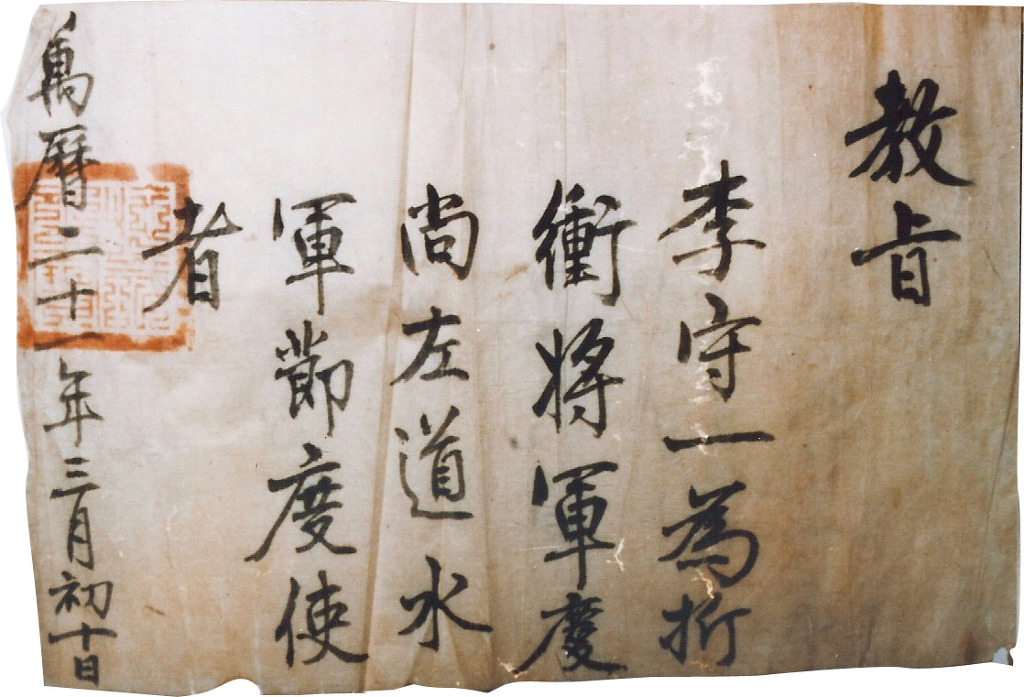 教旨
李守一為折
衝將軍慶
尚左道水
軍節度使
者
萬曆二十一年三月初十日